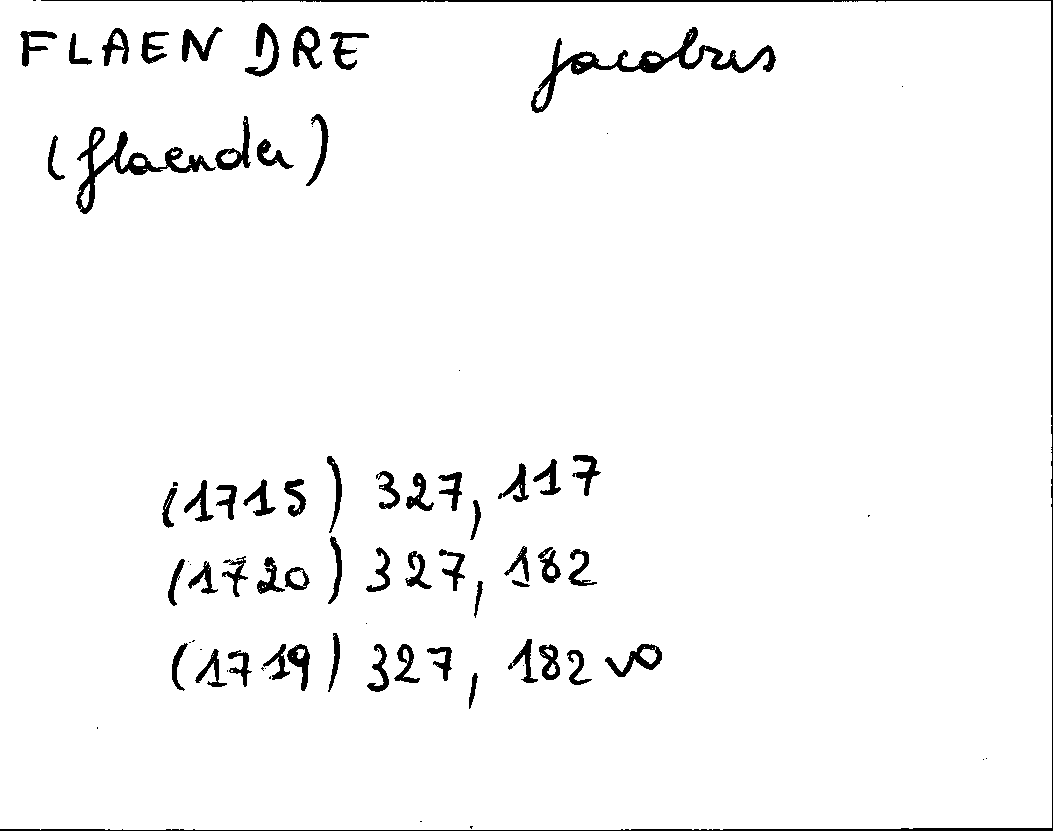 FLAENDRE jacobus
(flaender)
(1715) 327, 117
(1720) 327, 182
(1719) 327, 182 vo